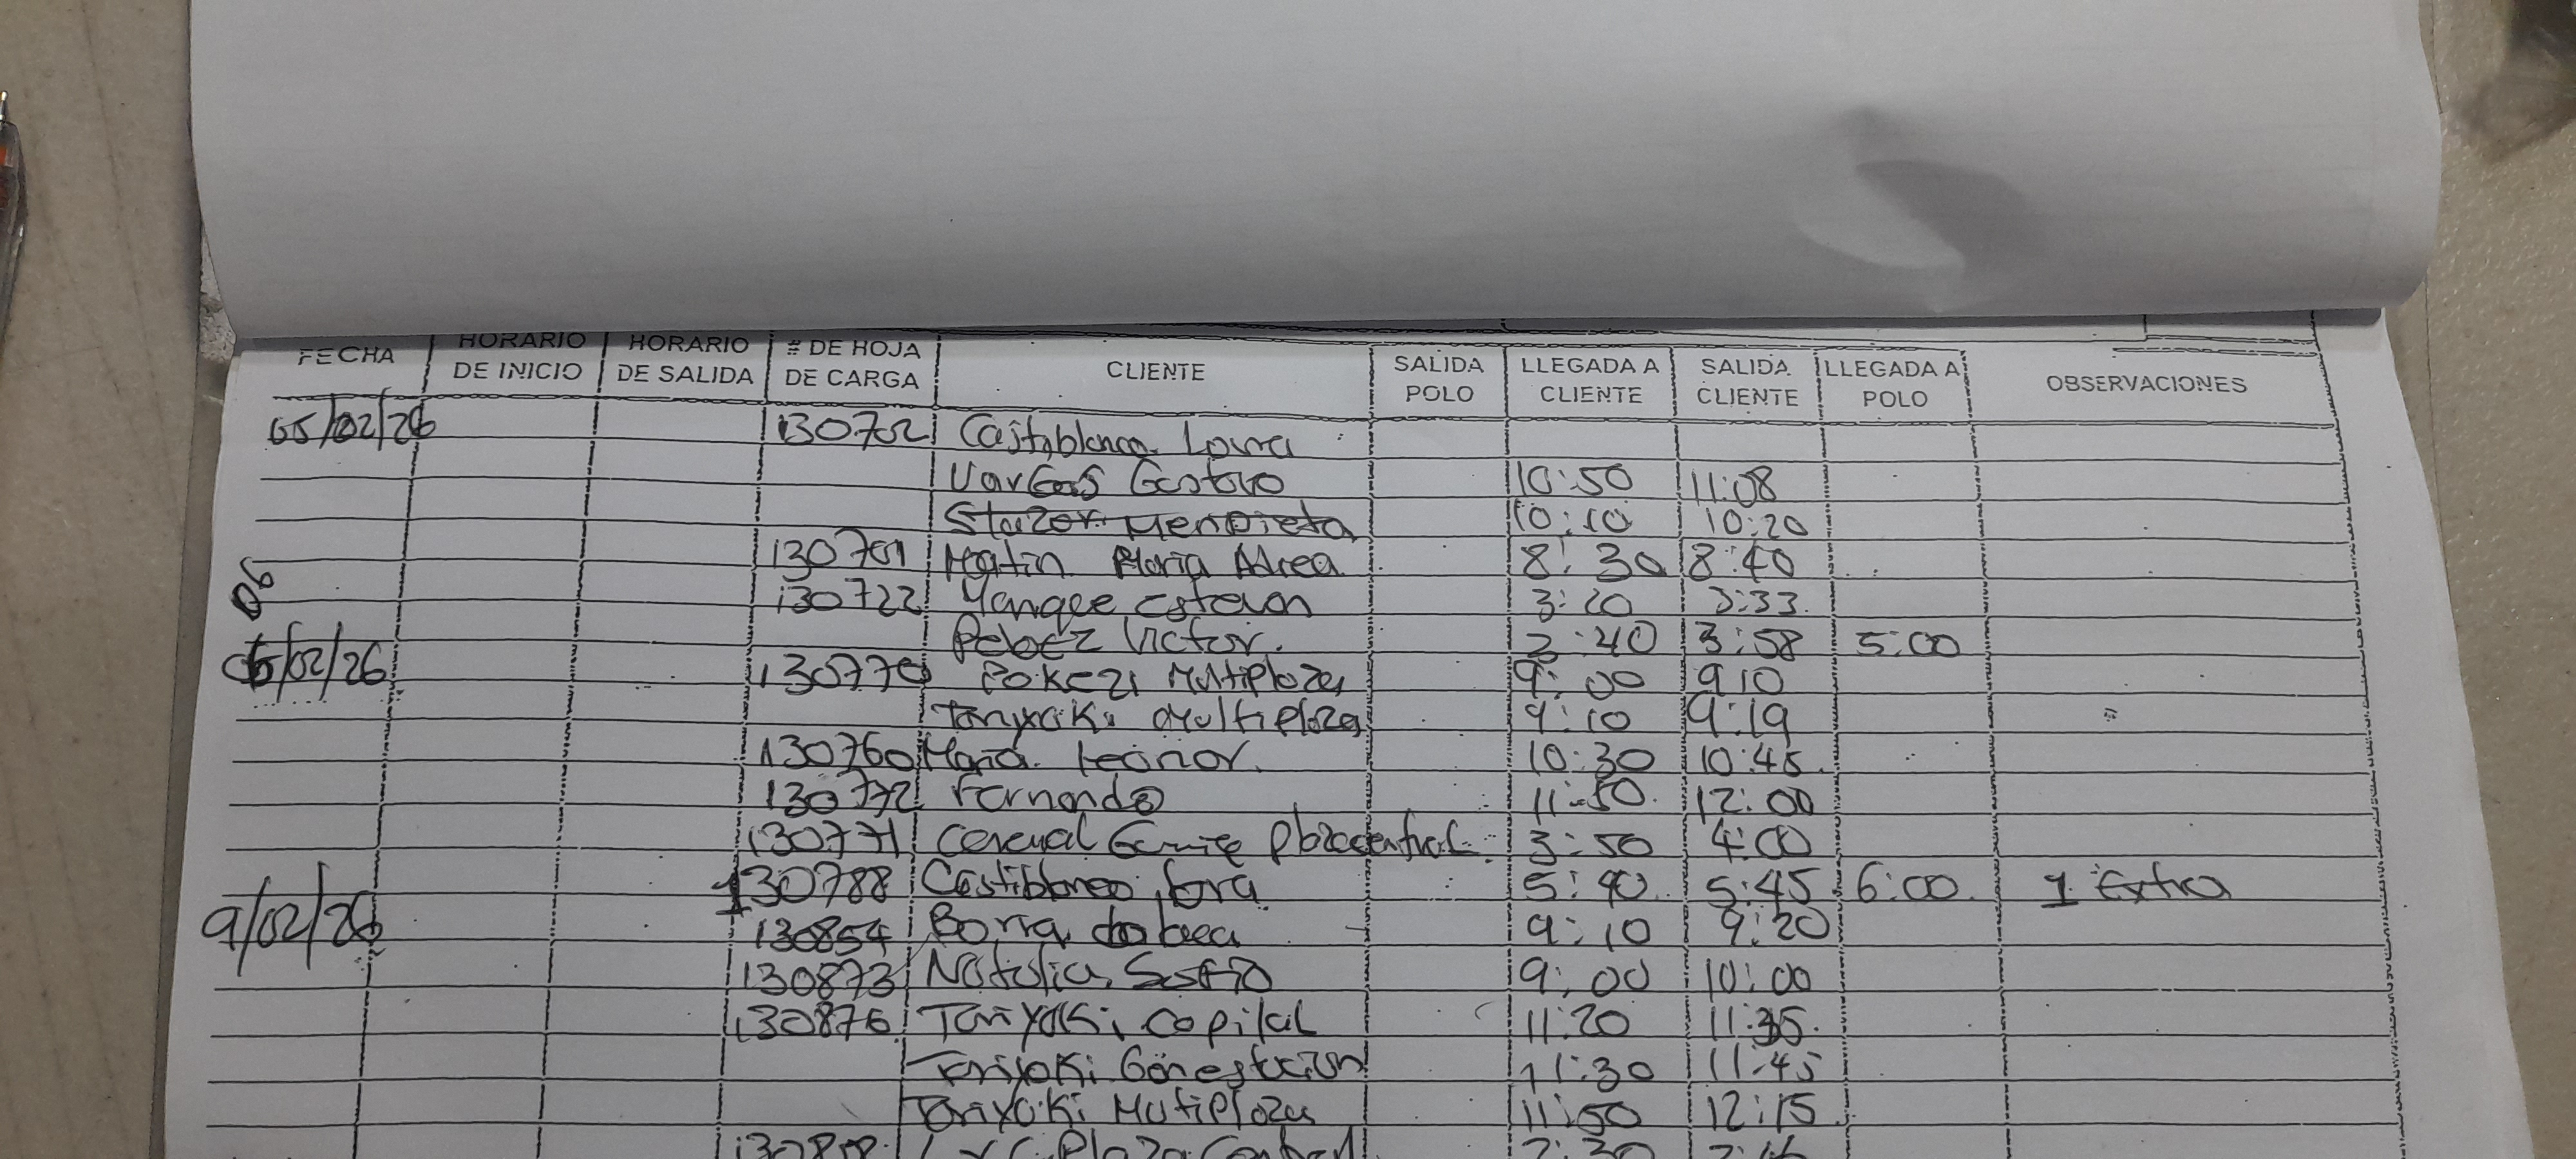 FECHA HORARIO DE INICIO HORARIO DE SALIDA # DE HOJA DE CARGA CLIENTE SALIDA POLO LLEGADA A CLIENTE SALIDA CLIENTE LLEGADA A POLO OBSERVACIONES
05/02/26 130702 Castiblanco Laura
Vargas Gustavo 10:50 11:08
Mendieta 10:10 10:20
130701 Matin Maria Adrea 8:30 8:40
06
130722 Yanque Estevan 3:20 3:33
Victor. 3:40 3:58 5:00
06/02/26 130770 Pokezi Multiplaza 9:00 910
Tanyaki Multiplaza 9:10 9:19
130760 Maria Leonor. 10:30 10:45
130772 Fernando 11:50 12:00
130771 Plazacentral 3:50 4:00
130788 Castiblanco Lora 5:40 5:45 6:00 1 Extra
9/02/26 130854 Borra 9:10 9:20
130873 Natalia 9:00 10:00
130876 Tariyaki Copital 11:20 11:35
Tariyaki 11:30 11:45
Tariyaki Mutiplaza 11:50 12:15
Plaza Central